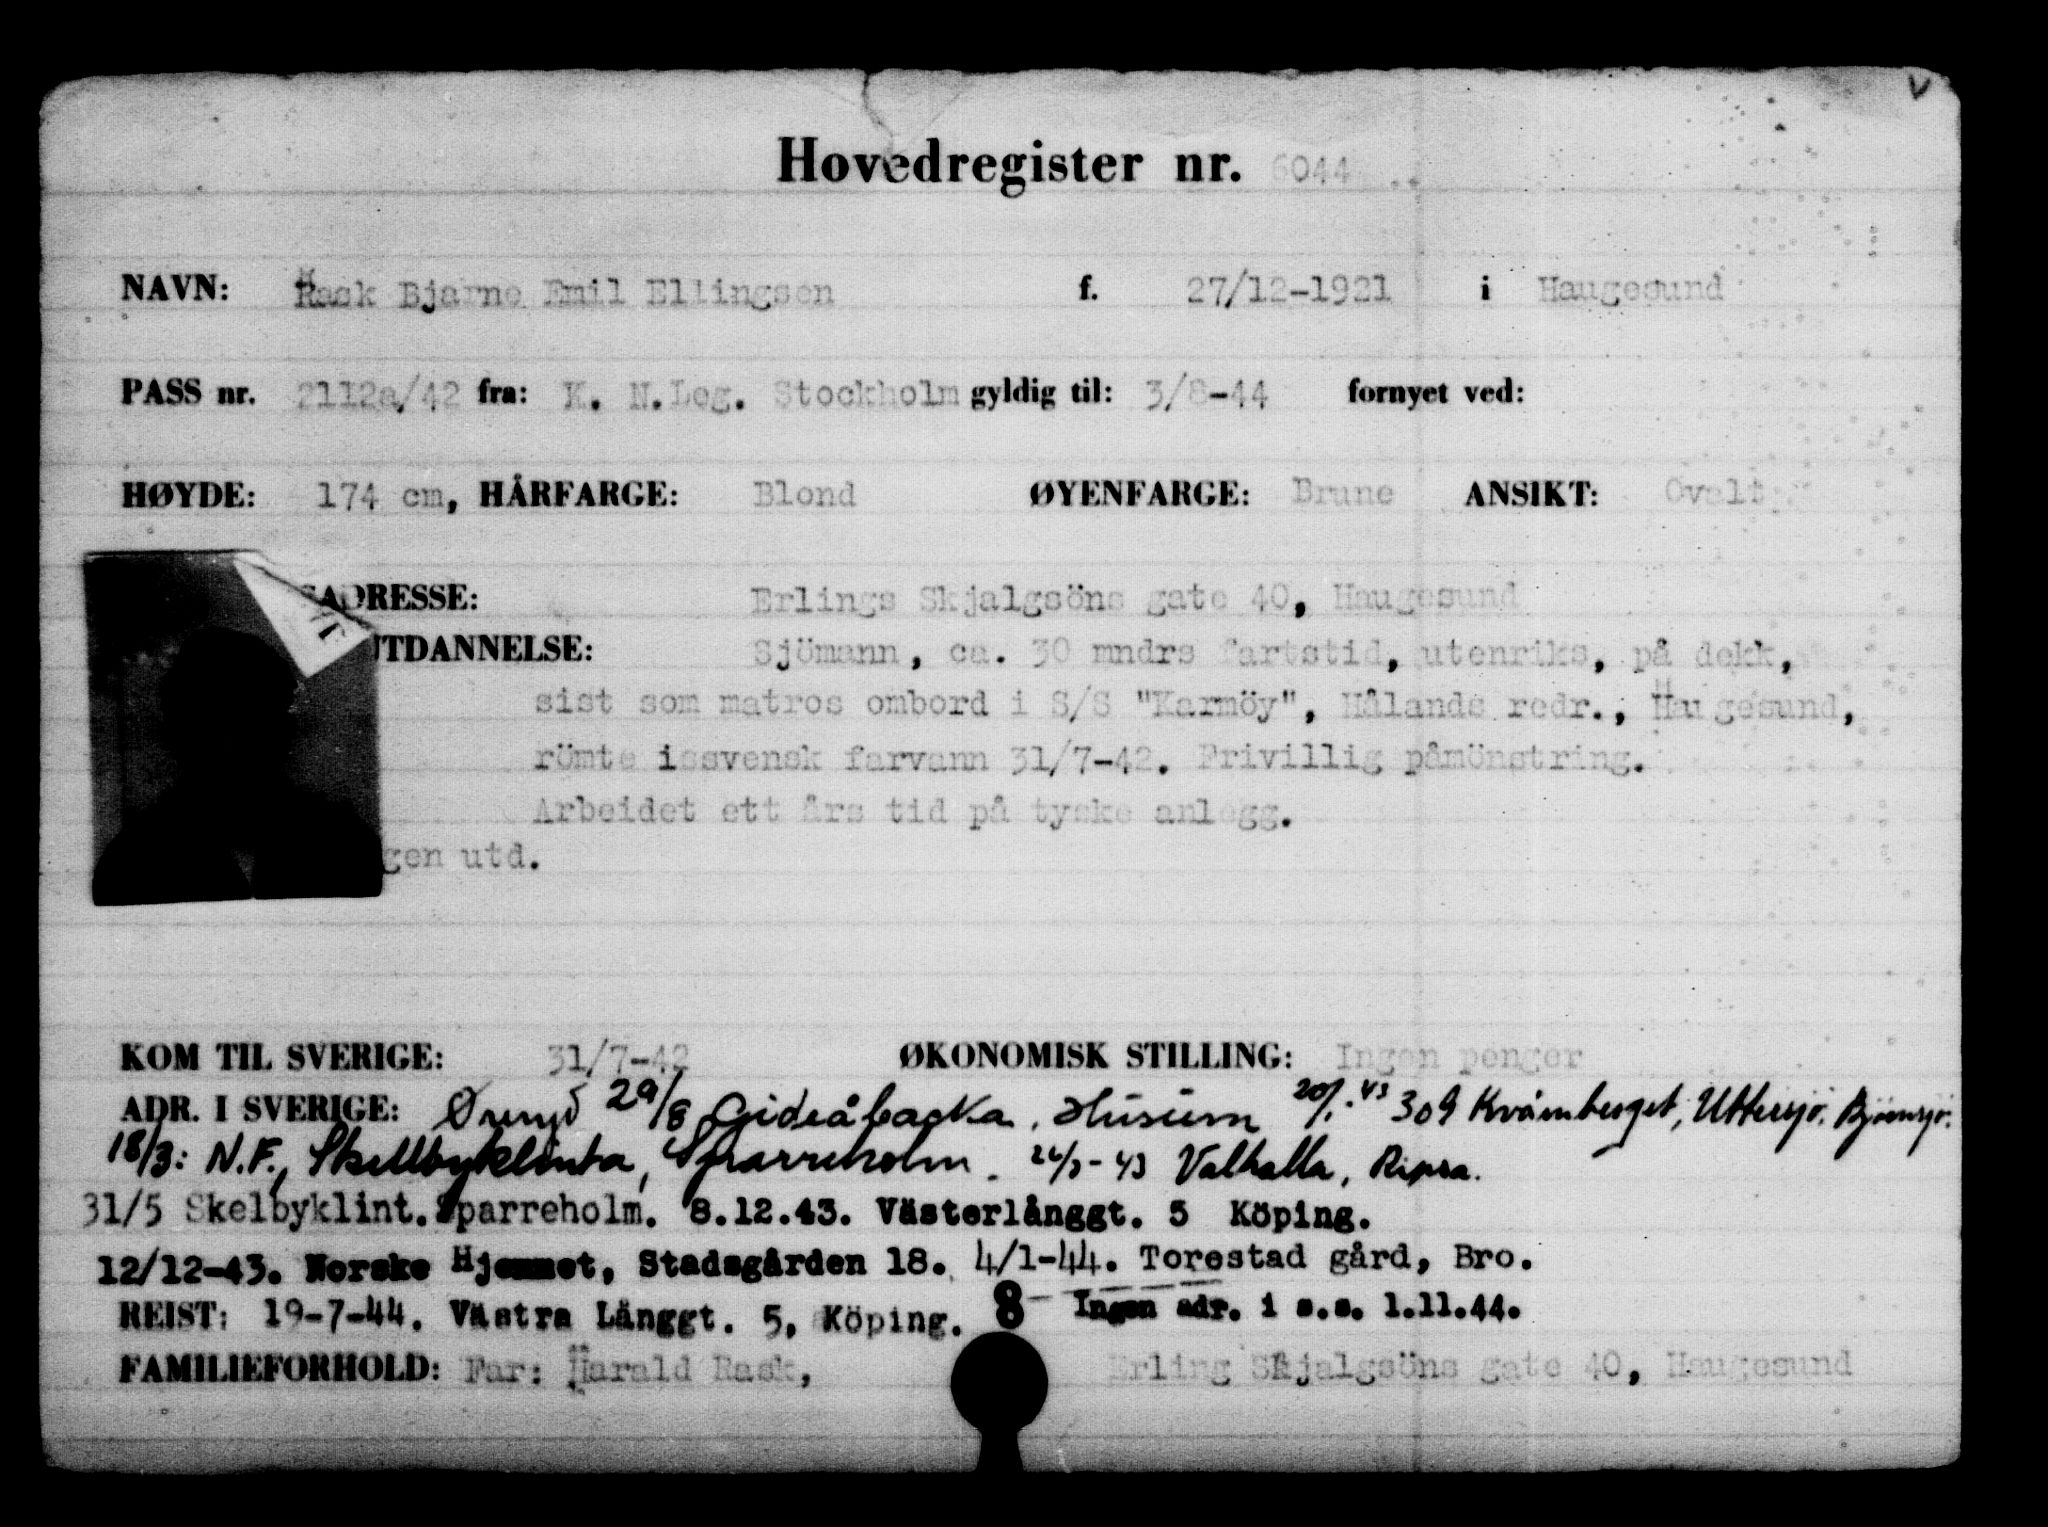 V
Hovedregister nr. 6044
NAVN: Rask Bjarne Emil Ellingsen f. 27/12-1921 i Haugesund
PASS nr. 2112a/42 fra: K. N.Leg. Stockholm gyldig til: 3/8-44 fornyet ved:
HØYDE: 174 cm, HÅRFARGE: Blond ØYENFARGE: Brune ANSIKT: Ovalt
SADRESSE: Erlings Skjalgsöns gate 40, Haugesund
UTDANNELSE: Sjömann, ca. 30 mndrs fartstid, utenriks, på dekk,
sist som matros ombord i S/S "Karmöy", Hålands redr., Haugesund,
römte issvensk farvann 31/7-42. Frivillig påmönstring.
Arbeidet ett års tid på tyske anlegg.
gen utd.
KOM TIL SVERIGE: 31/7-42 ØKONOMISK STILLING: Ingen penger
ADR. I SVERIGE: Öreryd 29/8 Gideåbacka, Husum 20/1-43 309 Kvarnberget, Uttersjö, Björnsjö.
18/3: N.F., Skellbyklinta, Sparreholm. 26/3-43 Valhalla, Ripsa.
31/5 Skelbyklint. Sparreholm. 8.12.43. Västerlånggt. 5 Köping.
12/12-43. Norske Hjemmet, Stadsgården 18. 4/1-44. Torestad gård, Bro.
REIST: 19-7-44. Västra Långgt. 5, Köping. 8 Ingen adr. i s.s. 1.11.44.
FAMILIEFORHOLD: Far: Harald Rask, Erling Skjalgsöns gate 40, Haugesund